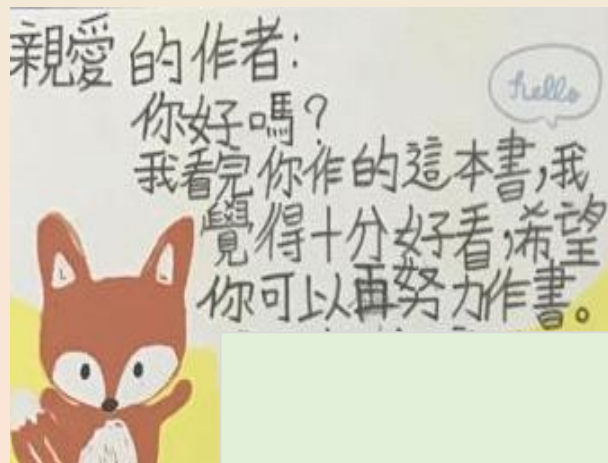 親愛的作者:
hello
你好嗎?
我看完你作的這本書,我
覺得十分好看,希望
你可以再努力作書。